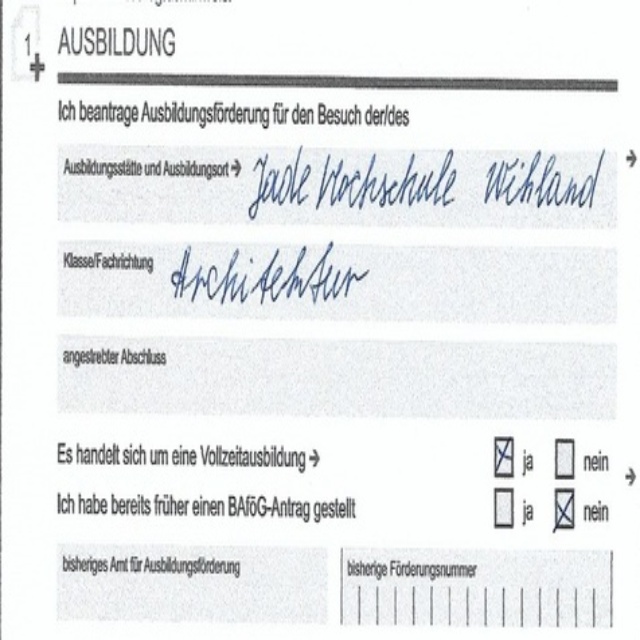 1 AUSBILDUNG
Ich beantrage Ausbildungsförderung für den Besuch der/des
Ausbildungsstätte und Ausbildungsort → Jade Hochschule Wihland
Klasse/Fachrichtung Architektur
angestrebter Abschluss
Es handelt sich um eine Vollzeitausbildung → ja nein
Ich habe bereits früher einen BAföG-Antrag gestellt ja nein
bisheriges Amt für Ausbildungsförderung bisherige Förderungsnummer